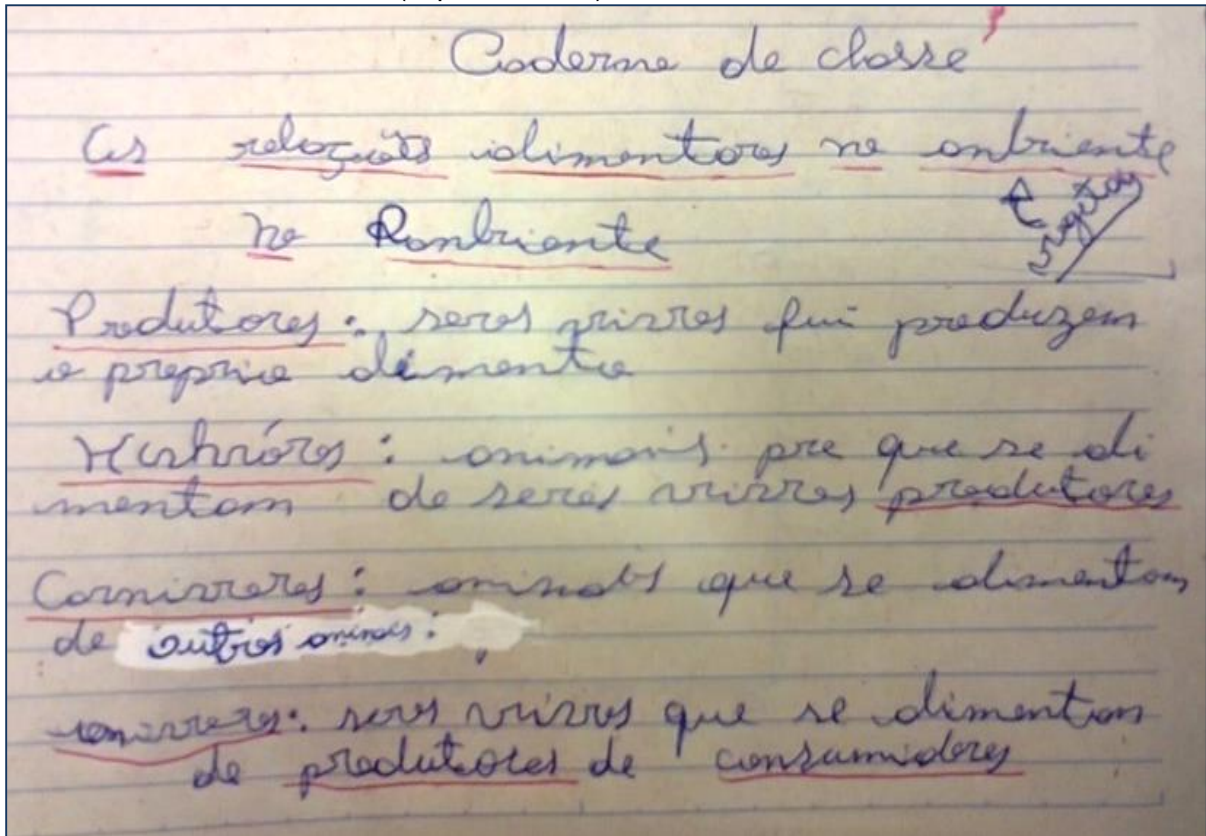 Caderno de classe
As relações alimentares no ambiente
no Rambiente
Produtores: seres vivvos qui produzem
o proprio alimento
animais pre que se ali
mentam de seres vivvos produtores
Carnivvoros: animais que se alimentam
de outros animais:
seres vivvos que se alimentam
de produtores de consumidores